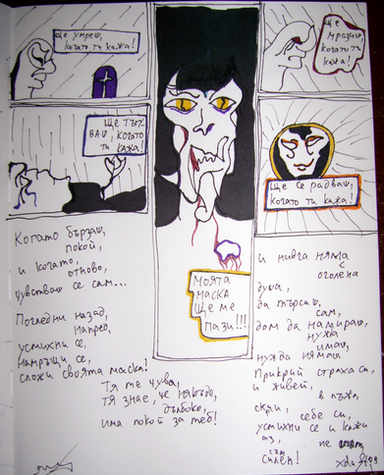 Ще умреш,
когато ти
кажа!
Ще
мразиш,
когато ти
кажа!
Ще тъг-
ваш, когато
ти
кажа!
Ще се радваш,
когато ти кажа!
Моята
маска
ще ме
пази!!!
Когато бързаш,
покой,
и когато,
отново,
чувстваш се сам...
Погледни назад,
напред,
усмихни се,
намръщи се,
сложи своята маска!
Тя те чува,
тя знае, че
дълбоко,
има покой за теб!
и нивга няма
с
оголена
душа,
да търсиш,
сам,
дом да намираш,
нужда
имаш,
нужда нямаш
Прикрий страха си,
и живей,
в лъжа,
скрий,
себе си,
усмихни се и кажи
аз, не
съм
силен!